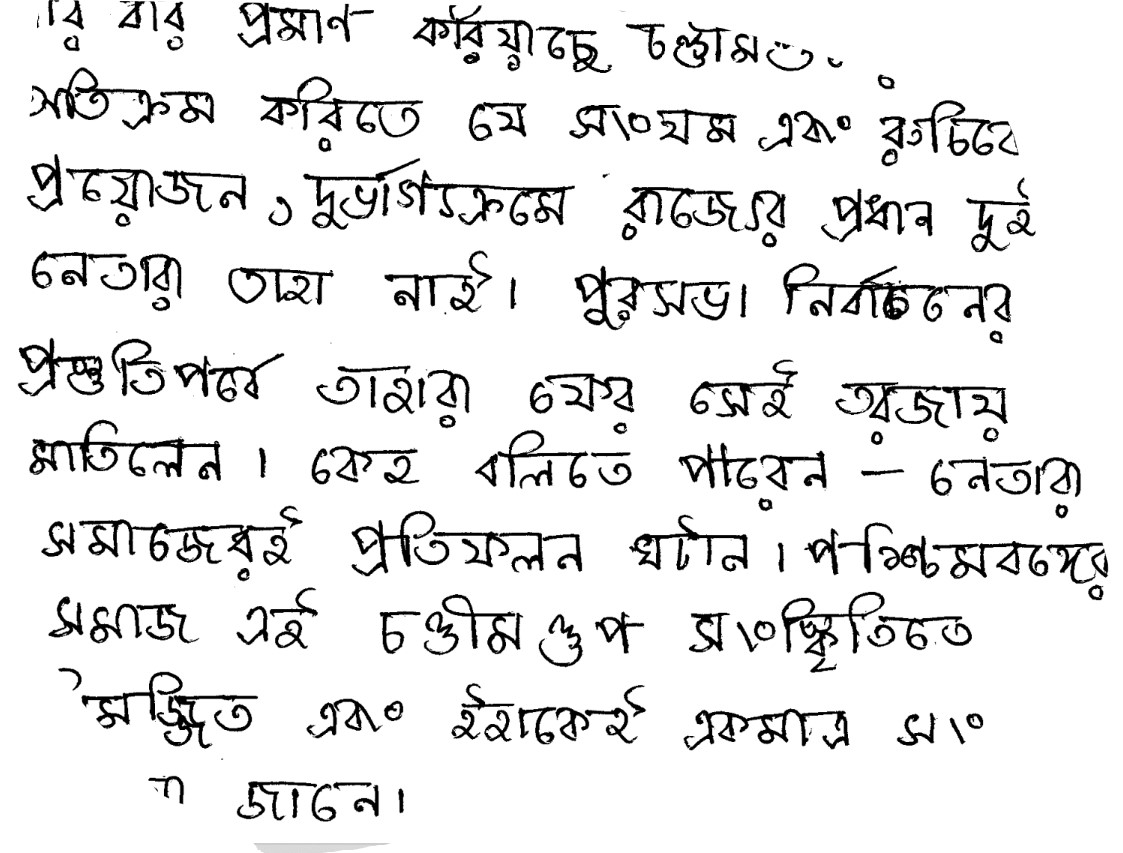 বার প্রমাণ করিয়াছে
অতিক্রম করিতে যে সাংযম এবং রুচিবে
প্রয়োজন, দুর্ভাগ্যক্রমে রাজ্যের প্রধান দুই
নেতারা তাহা নাই। পুরসভা নির্বাচনের
প্রস্তুতিপর্বে তাহারা ফের সেই তরজায়
মাতিলেন। কেহ বলিতে পারেন – নেতারা
সমাজেরই প্রতিফলন ঘটান। পশ্চিমবঙ্গের
সমাজ এই চণ্ডীমণ্ডপ সাংস্কৃতিতে
মজ্জিত এবং ইহাকেই একমাত্র সাং
জানে।